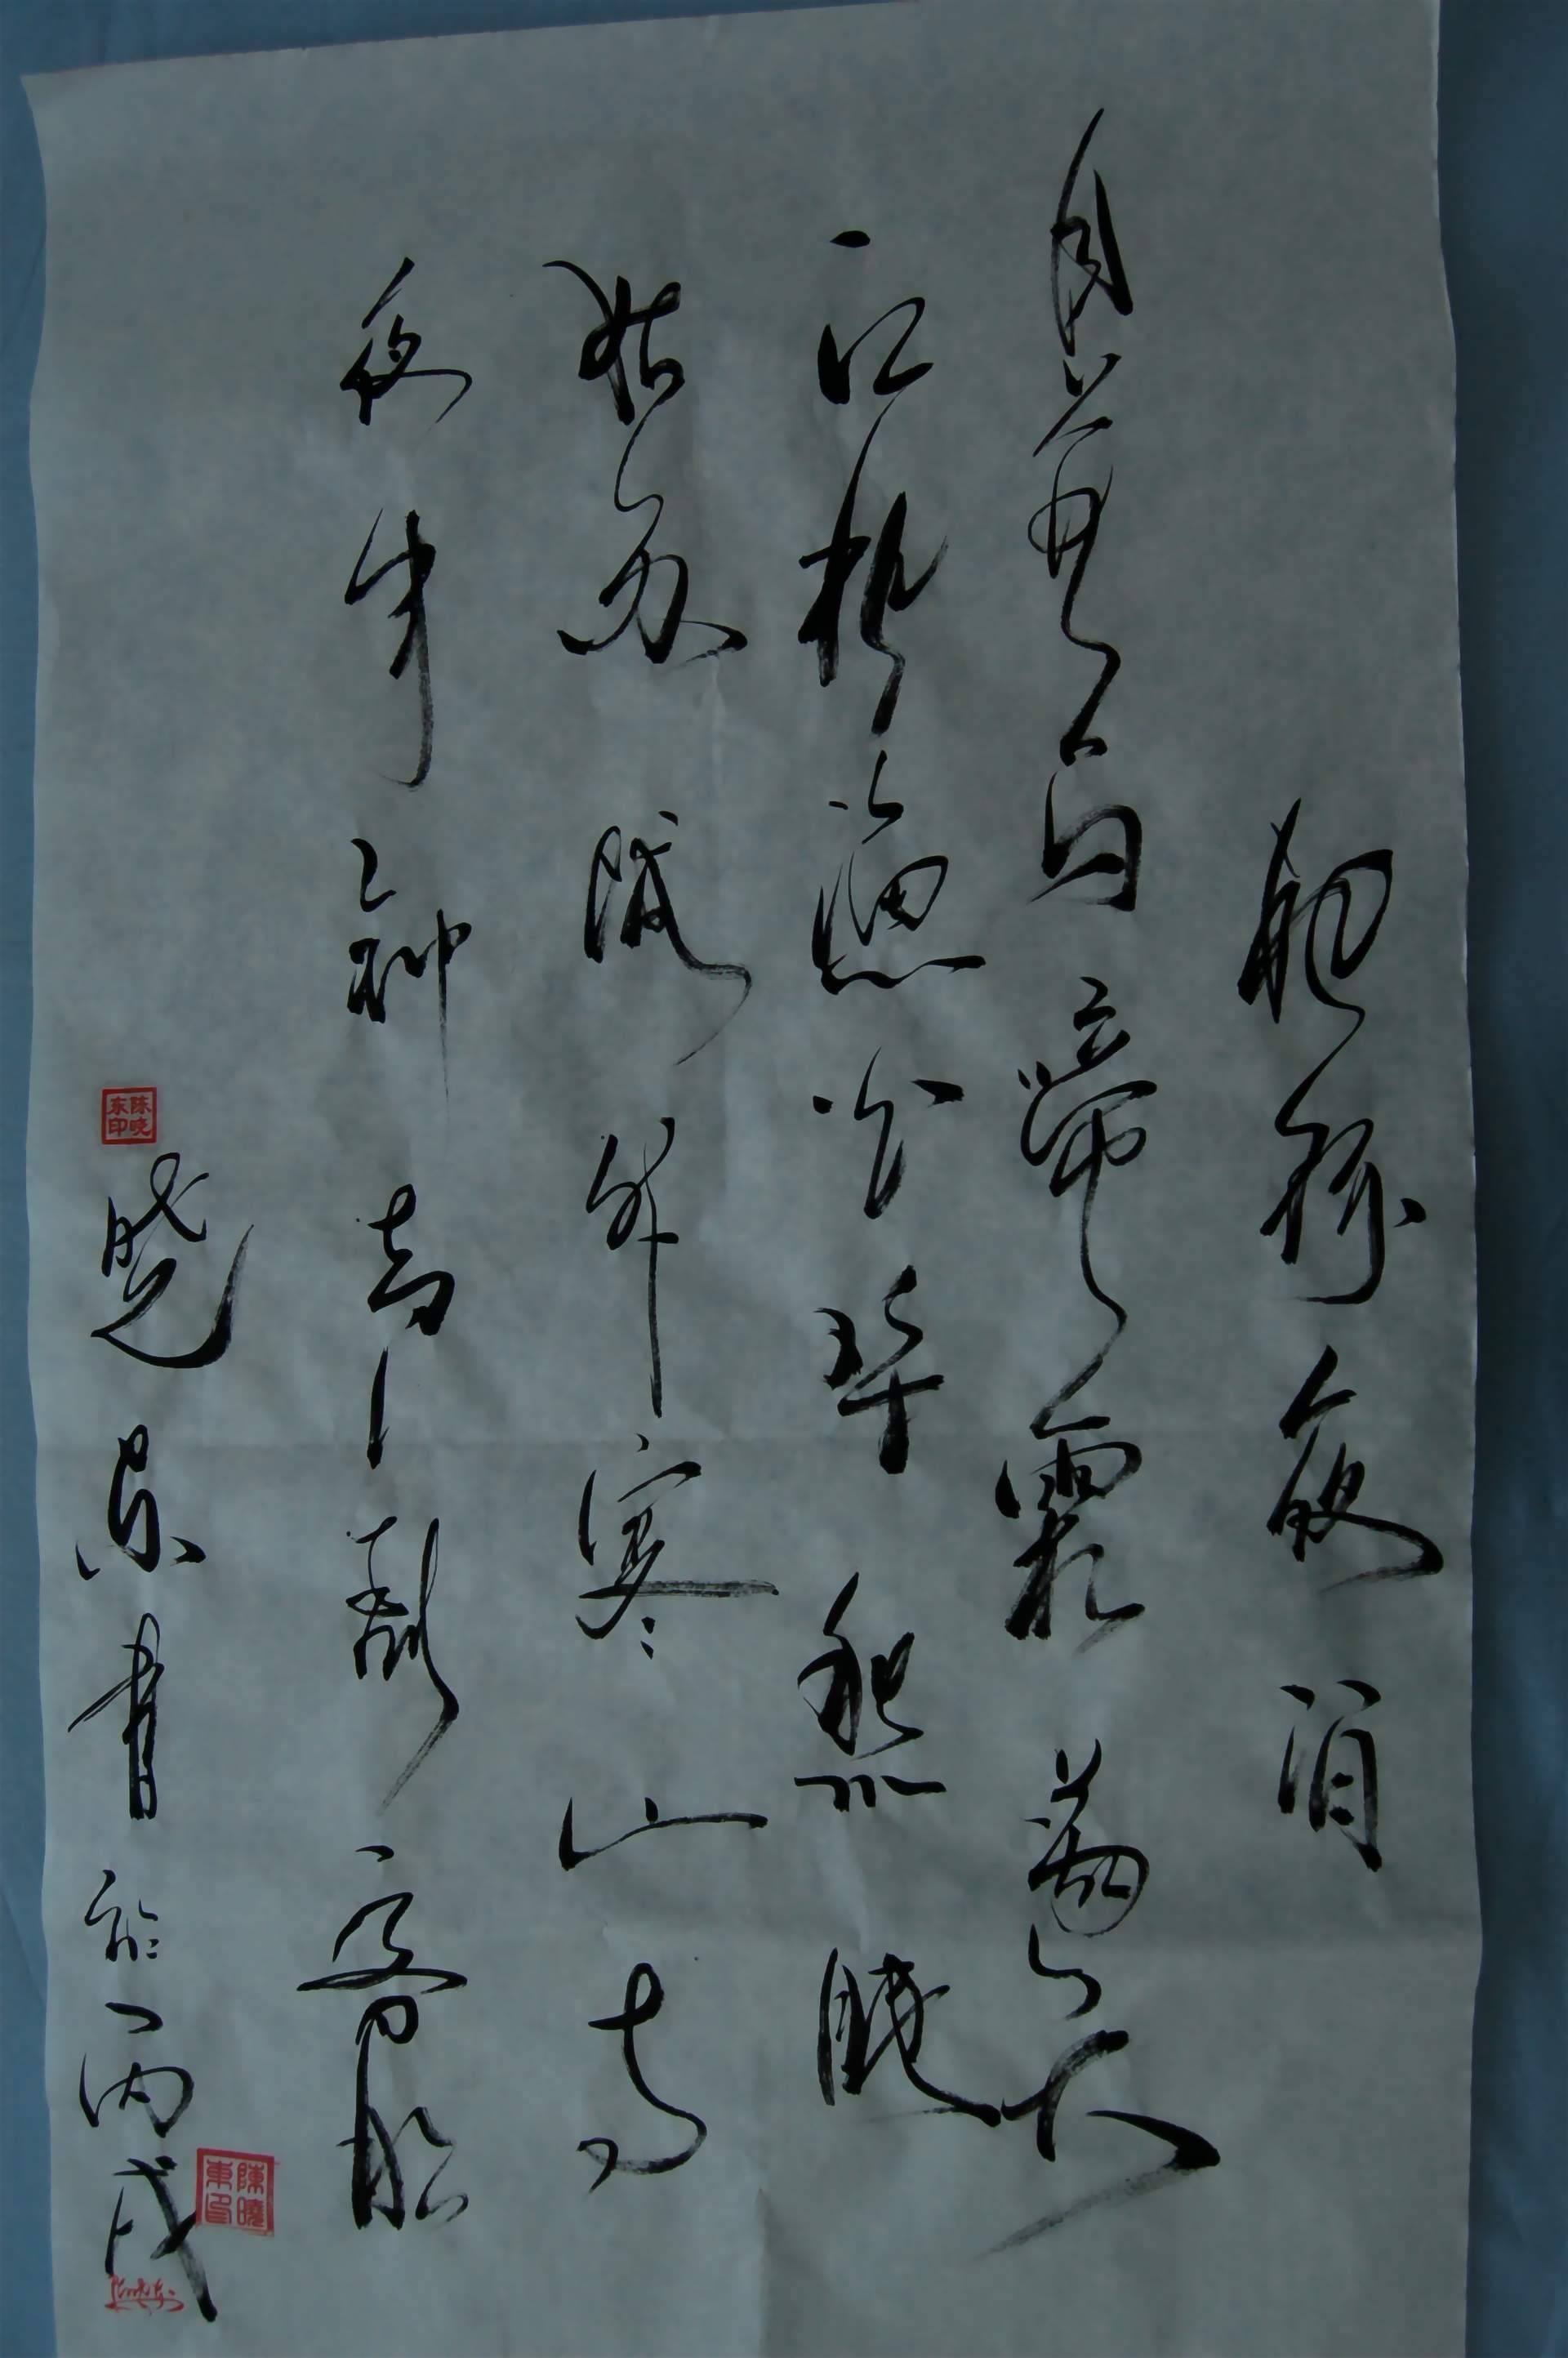 枫桥夜泊
月落乌啼霜满天
江枫渔火对愁眠
姑苏城外寒山寺
夜半钟声到客船
陈晓东印
晓东书於丙戌
陳曉東印